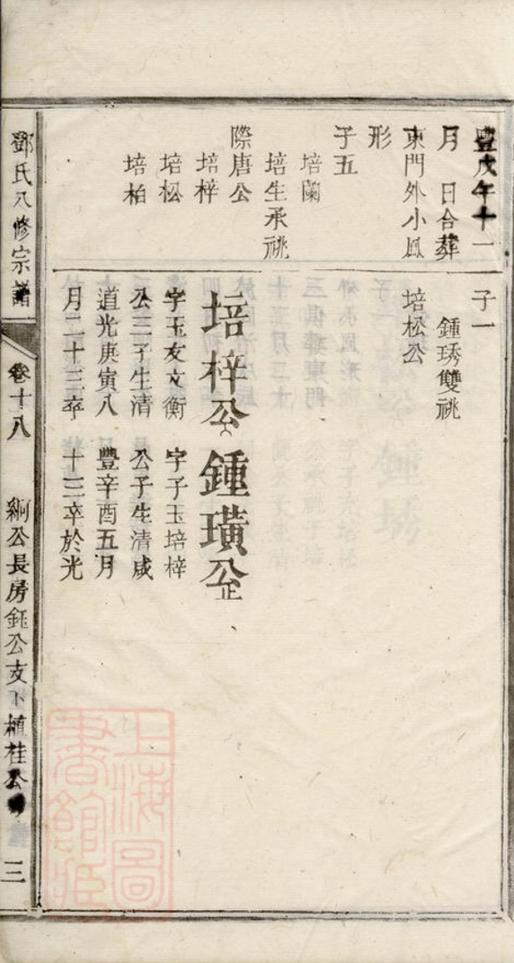 豐戊午十一
月　日合葬
東門外小鳳
形
子五
培蘭
培生承祧
際唐公
培梓
培松
培柏
子一
鍾琇雙祧
培松公
培梓公
字玉友文衡
公三子生清
道光庚寅八
月二十三卒
鍾璜公
字子玉培梓
公子生清咸
豐辛酉五月
十二卒於光
鄧氏八修宗譜
卷十八
綱公長房鈺公支下植桂公
三
上海圖書館藏